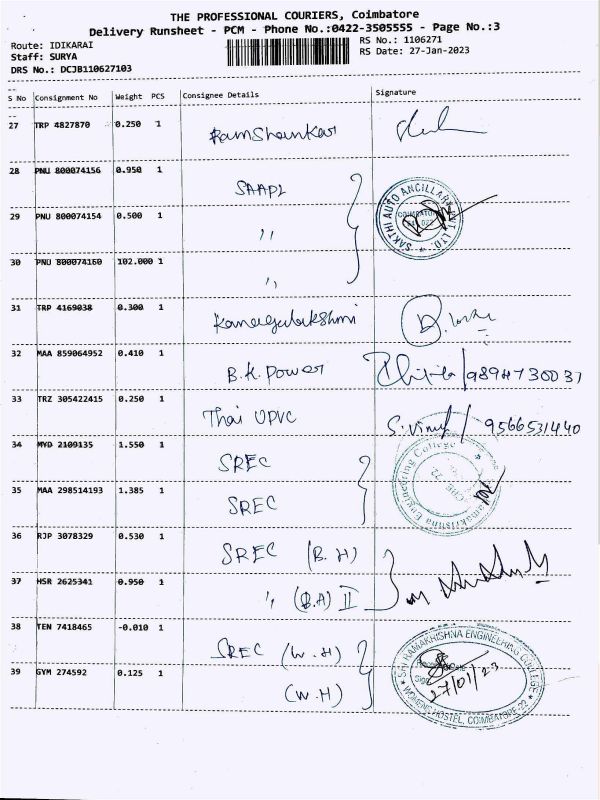 THE PROFESSIONAL COURIERS, Coimbatore
Delivery Runsheet - PCM - Phone No.:0422-3505555 - Page No.:3
Route: IDIKARAI
RS No.: 1106271
Staff: SURYA
RS Date: 27-Jan-2023
DRS No.: DCJB110627103
S No Consignment No Weight PCS Consignee Details Signature
27 TRP 4827870 0.250 1 RamShankar
28 PNU 800074156 0.950 1 SAAPL
29 PNU 800074154 0.500 1 ,,
30 PNU 800074160 102.000 1 ,,
SAKTHI AUTO ANCILLARY PVT. LTD.
31 TRP 4169038 0.300 1
32 MAA 859064952 0.410 1 B.K. Power
33 TRZ 305422415 0.250 1 Thai UPVC S. / 9566531440
34 MYD 2109135 1.550 1 SREC
35 MAA 298514193 1.385 1 SREC
Ramakrishna Engineering College
36 RJP 3078329 0.530 1 SREC (B.H)
37 HSR 2625341 0.950 1 ,, (B.H) II
38 TEN 7418465 -0.010 1 SREC (W.H)
39 GYM 274592 0.125 1 (W.H)
SRI RAMAKRISHNA ENGINEERING COLLEGE
27/01/23
WOMENS HOSTEL, COIMBATORE-22